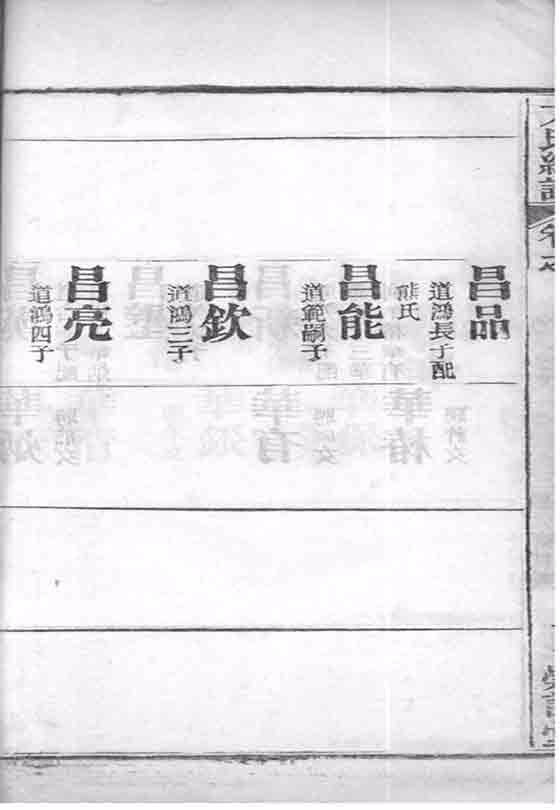 昌品
道鴻長子配
熊氏
昌能
道範嗣子
昌欽
道鴻三子
昌亮
道鴻四子